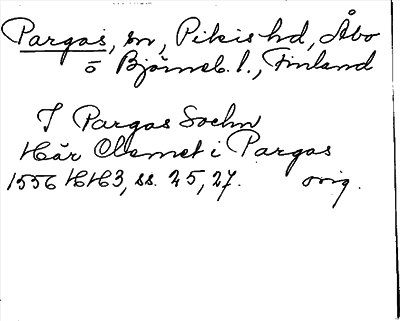 Pargas, sn, Pikis hd, Åbo
o Björneb. l., Finland
J Pargas Sochn
Hår Clemet i Pargas
1556 HH3, ss. 25, 27. orig.